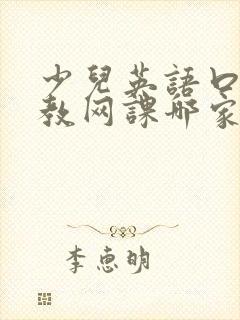 少兒英語口
教网課哪家
李惠明